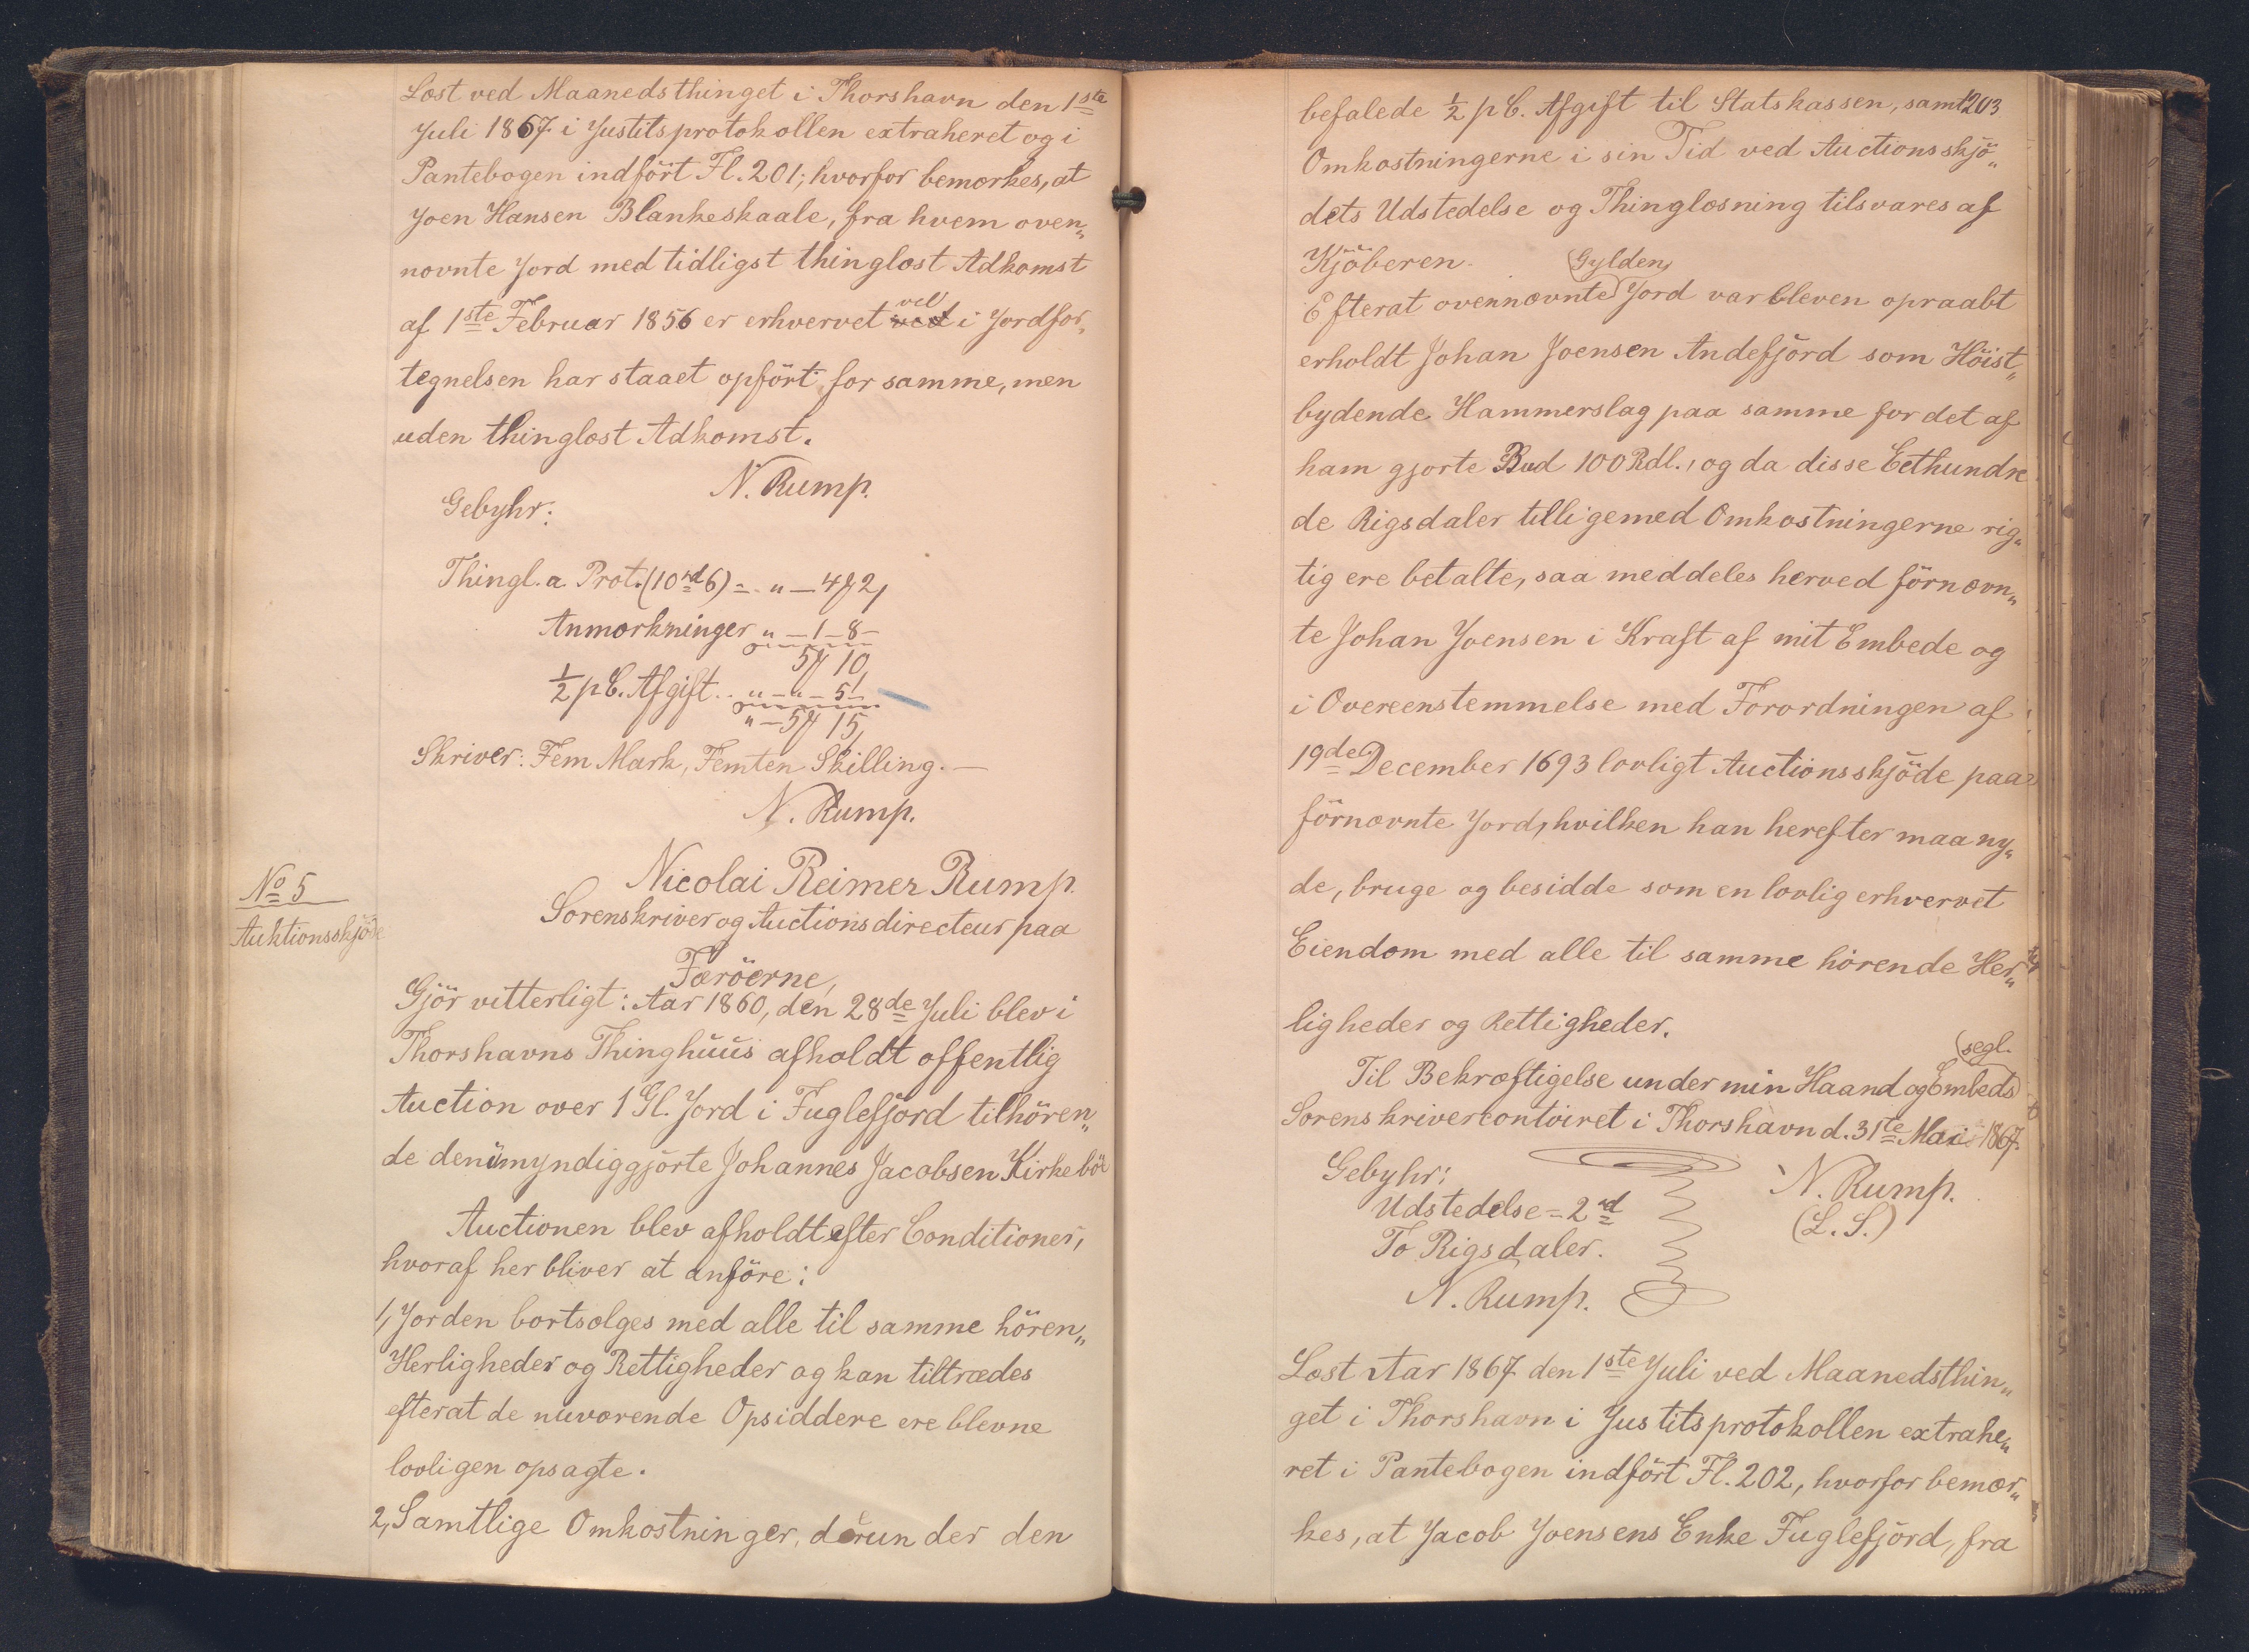 Læst ved Maanedsthinget i Thorshavn den 1ste
Juli 1867 i Justitsprotokollen extraheret og i
Pantebogen indfört Fl. 201; hvorfor bemærkes, at
Joen Hansen Blankeskaale, fra hvem oven„
nævnte Jord med tidligst thinglæst Adkomst
af 1ste Februar 1856 er erhvervet ved vel i Jordfor„
tegnelsen har staaet opfört for samme, men
uden thinglæst Adkomst.
N. Rump.
Gebyhr:
Thingl. a. Prot. (10rd 6) = „ — 4 ℳ 2,
Anmærkninger „ — 1 – 8 –
5 ℳ 10,
½ pC. Afgift .. „ – „ – 5 –
„ — 5 ℳ 15,
Skriver: Fem Mark, Femten Skilling. —
N. Rump.
No 5
Auktionsskjöde
Nicolai Reimer Rump.
Sorenskriver og Auctionsdirecteur paa
Færöerne,
Gjör vitterligt: Aar 1860, den 28de Juli blev i
Thorshavns Thinghuus afholdt offentlig
Auction over 1 Gl. Jord i Fuglefjord tilhören„
de den umyndiggjorte Johannes Jacobsen Kirkebö
Auctionen blev afholdt efter Conditioner,
hvoraf her bliver at anföre:
1, Jorden bortsælges med alle til samme hören„
Herligheder og Rettigheder og kan tiltrædes
efterat de nuværende Opsiddere ere blevne
lovligen opsagte.
2, Samtlige Omkostninger, derunder den
203
befalede ½ pC. Afgift til Statskassen, samt
Omkostningerne i sin Tid ved Auctionsskjö„
dets Udstedelse og Thinglæsning tilsvares af
Kjöberen.
Gylden
Efterat ovennævnte Jord var bleven opraabt
erholdt Johan Joensen Andefjörd som Höist„
bydende Hammerslag paa samme for det af
ham gjorte Bud 100 Rdl., og da disse Eethundre
de Rigsdaler tilligemed Omkostningerne rig„
tig ere betalte, saa meddeles herved förnævn„
te Johan Joensen i Kraft af mit Embede og
i Overeenstemmelse med Forordningen af
19de December 1693 lovligt Auctionsskjöde paa
förnævnte Jord, hvilken han herefter maa ny„
de, bruge og besidde som en lovlig erhvervet
Eiendom med alle til samme hörende Her„
ligheder og Rettigheder.
segl.
Til Bekræftigelse under min Haand og Embeds
Sorenskrivercontoiret i Thorshavn d. 31te Mai 1867.
Gebyhr:
Udstedelse = 2 rd
To Rigsdaler.
N. Rump.
N. Rump.
(L. S.)
Læst Aar 1867 den 1ste Juli ved Maanedsthin„
get i Thorshavn i Justitsprotokollen extrahe„
ret i Pantebogen indfört Fl. 202, hvorfor bemær„
kes, at Jacob Joensens Enke Fuglefjörd, fra